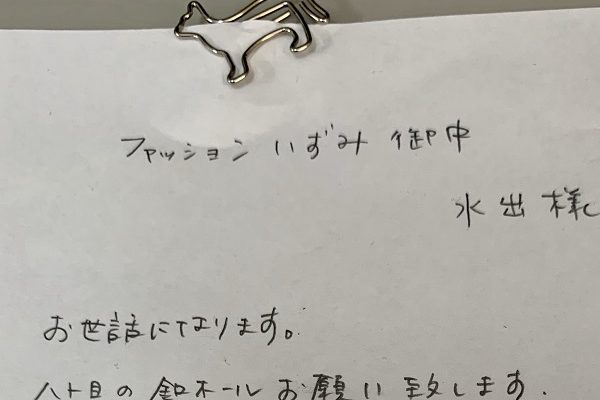 ファッション いずみ 御中
水出 様
お世話になります。
ハト目の釦ホールお願い致します.